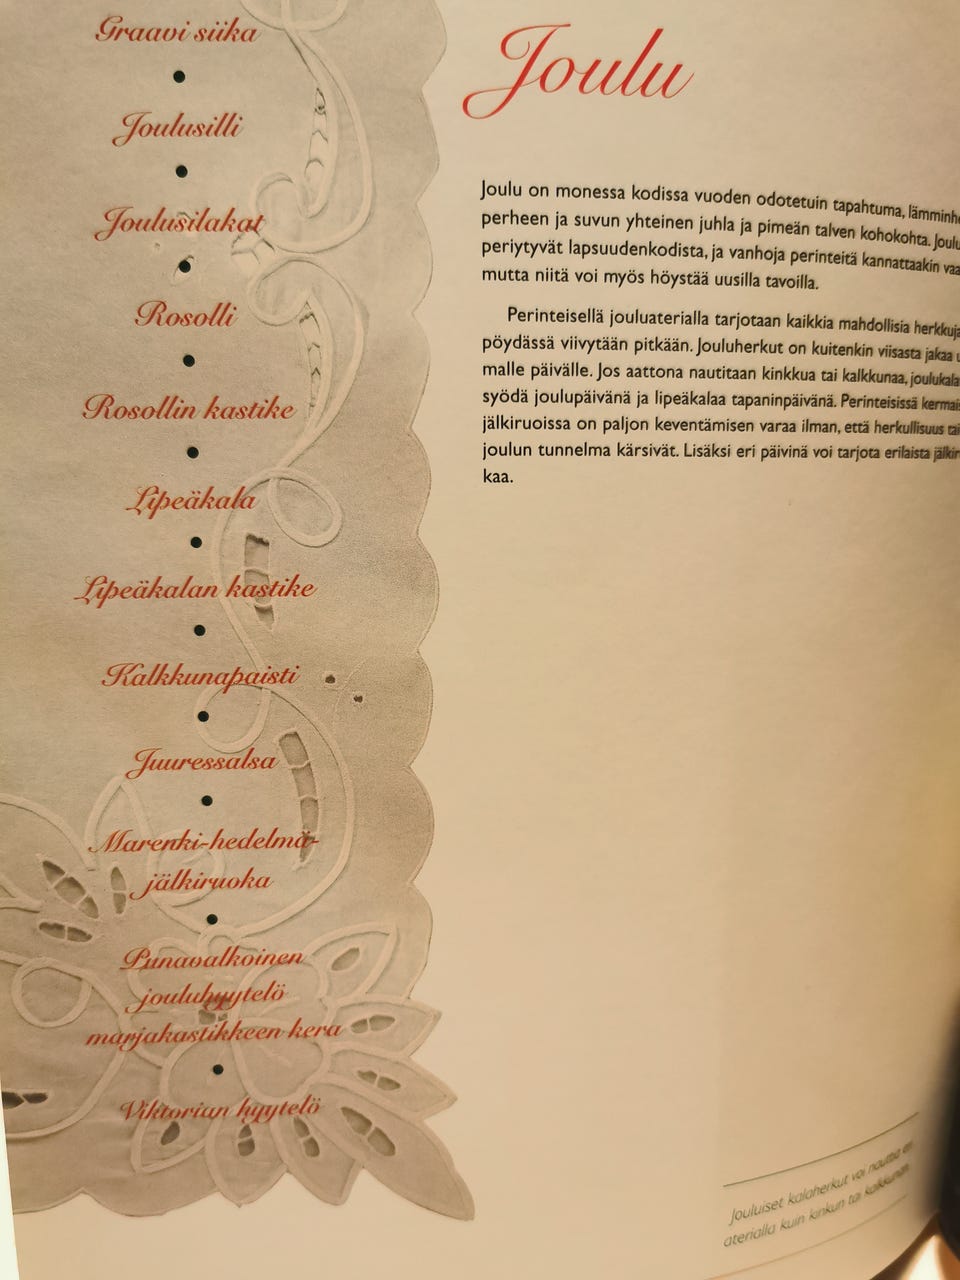 Graavi siika
Joulusilli
Joulusilakat
Rosolli
Rosollin kastike
Lipeäkala
Lipeäkalan kastike
Kalkkunapaisti
Juuressalsa
Marenki-hedelmä-
jälkiruoka
Punavalkoinen
jouluhyytelö
marjakastikkeen kera
Viktorian hyytelö
Joulu
Joulu on monessa kodissa vuoden odotetuin tapahtuma,
perheen ja suvun yhteinen juhla ja pimeän talven kohokohta.
periytyvät lapsuudenkodista, ja vanhoja perinteitä kannattaakin
mutta niitä voi myös höystää uusilla tavoilla.
Perinteisellä jouluaterialla tarjotaan kaikkia mahdollisia
pöydässä viivytään pitkään. Jouluherkut on kuitenkin viisasta jakaa
malle päivälle. Jos aattona nautitaan kinkkua tai kalkkunaa,
syödä joulupäivänä ja lipeäkalaa tapaninpäivänä. Perinteisissä
jälkiruoissa on paljon keventämisen varaa ilman, että herkullisuus
joulun tunnelma kärsivät. Lisäksi eri päivinä voi tarjota erilaista
kaa.
Jouluiset kalaherkut voi nauttia
aterialla kuin kinkun tai kalkkunan.